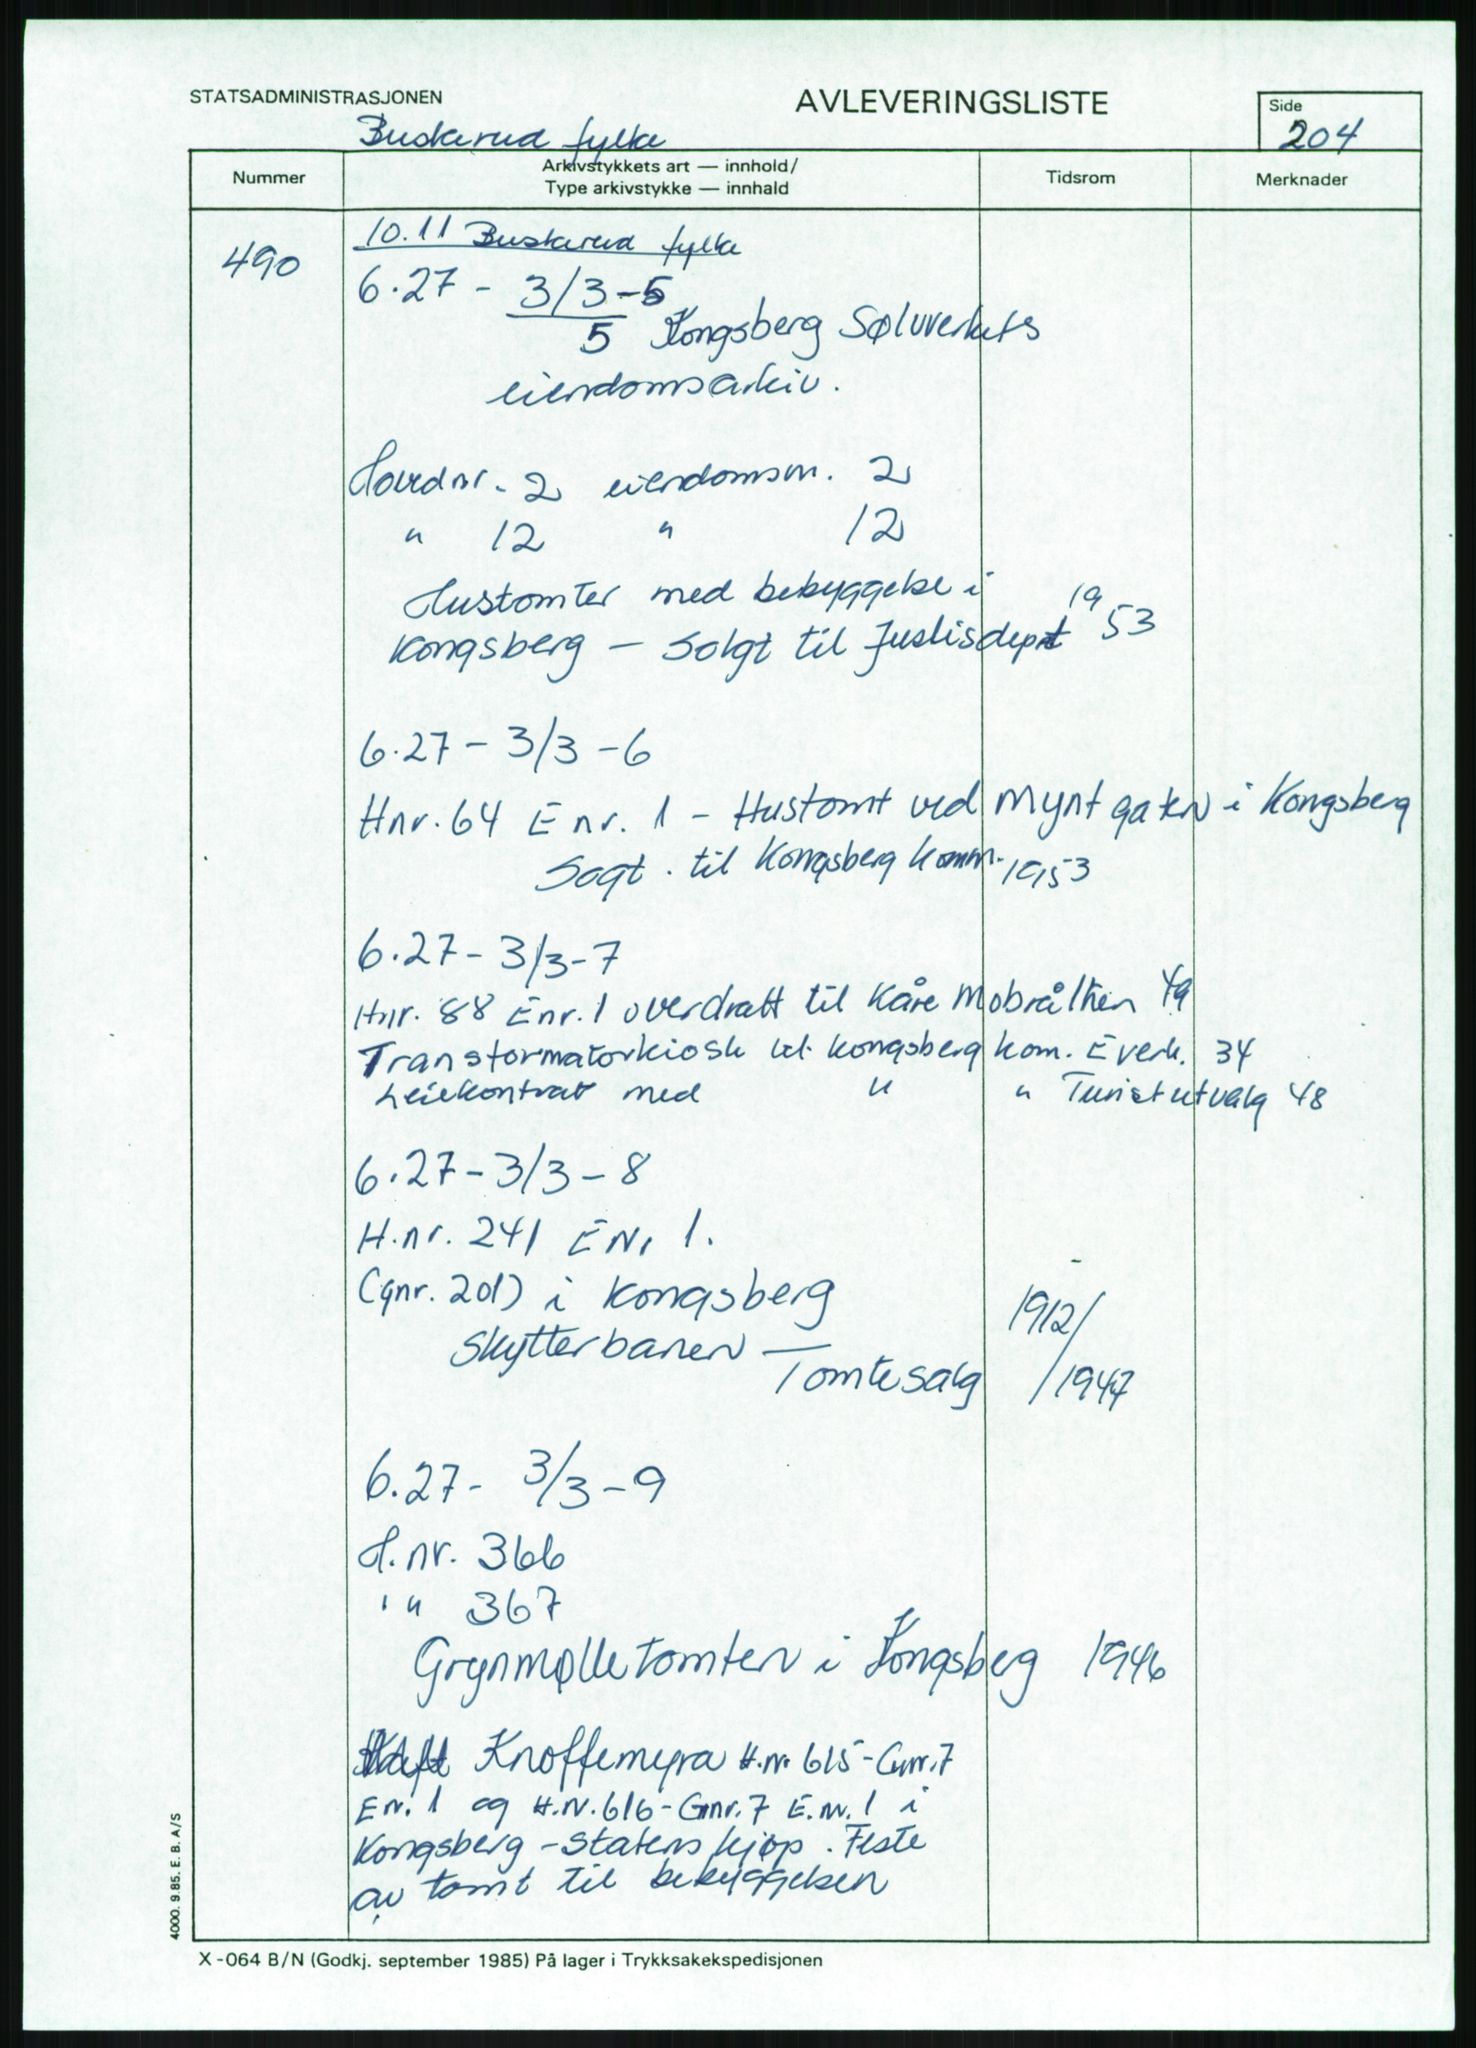 STATSADMINISTRASJONEN
AVLEVERINGSLISTE
Side
204
Buskerud fylke
Nummer
Arkivstykkets art — innhold/
Type arkivstykke — innhald
Tidsrom
Merknader
490
10.11 Buskerud fylke
6.27 - 3/3-5
5 Kongsberg Sølvverkets
eiendomsarkiv.
Hovednr. 2 eiendomsnr. 2
" 12 " 12
Hustomter med bebyggelse i
Kongsberg — Solgt til Justisdept 1953
6.27 - 3/3 - 6
Hnr. 64 E nr. 1 - Hustomt ved Myntgaten i Kongsberg
Sogt. til Kongsberg komm. 1953
6.27 - 3/3 - 7
Hnr. 88 Enr. 1 overdratt til Kåre Mobråthen 49
Transformatorkiosk til Kongsberg kom. Everk. 34
Leiekontrat med " " Turistutvalg 48
6.27 - 3/3 - 8
H.nr. 241 ENr 1.
(gnr. 201) i Kongsberg
Skytterbanen — Tomtesalg
1912/
/1947
6.27 - 3/3 - 9
H.nr. 366
" " 367
Grynmølletomten i Kongsberg 1946
Knoffemyra H.nr. 615 - Gnr. 7
Enr. 1 og H.N. 616 - Gnr. 7 E.nr. 1 i
Kongsberg - Statens kjøp. Feste
av tomt til bebyggelsen
4000. 9.85. E. B. A/S
X-064 B/N (Godkj. september 1985) På lager i Trykksakekspedisjonen